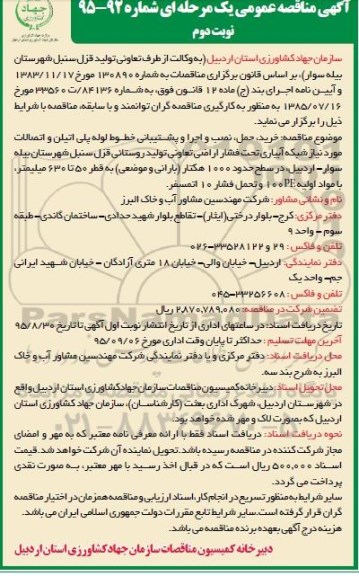 آگهی مناقصه عمومی یک مرحله ای شماره ۹۲-۹۵
نوبت دوم
جهاد
سازمان جهادکشاورزی استان اردبیل (به وکالت از طرف تعاونی تولید قزل سنبل شهرستان
بیله سوار)، بر اساس قانون برگزاری مناقصات به شماره ۱۳۰۸۹۰ مورخ ۱۳۸۳/۱۱/۱۷
و آیین نامه اجرایی بند (ج) ماده ۱۲ قانون فوق، به شماره ۸۴۱۳۶/ت ۳۳۵۶۰ مورخ
۱۳۸۵/۰۷/۱۶ به منظور به کارگیری مناقصه گران توانمند و با سابقه، مناقصه با شرایط
ذیل را برگزار می نماید.
موضوع مناقصه: خرید، حمل، نصب و اجرا و پشتیبانی خطوط لوله پلی اتیلن و اتصالات
مورد نیاز شبکه آبیاری تحت فشار اراضی تعاونی تولید روستائی قزل سنبل شهرستان بیله
سوار- اردبیل، در سطح حدود ۱۰۰۰ هکتار (بارانی و موضعی) به قطر ۵۰ تا ۶۳۰ میلیمتر،
با مواد اولیه PE100 و تحمل فشار ۱۰ اتمسفر.
نام و نشانی مشاور: شرکت مهندسین مشاور آب و خاک البرز
دفتر مرکزی: کرج- بلوار درختی (ایثار)- تقاطع بلوار شهید حدادی- ساختمان گاندی- طبقه
سوم - واحد ۹
تلفن و فاکس: ۲۹ و ۳۳۵۲۸۱۲۲-۰۲۶
دفتر نمایندگی: اردبیل- خیابان والی- خیابان ۱۸ متری آزادگان - خیابان شهید ایرانی
جم- واحد یک
تلفن و فاکس: ۳۳۲۵۶۶۰۸-۰۴۵
تضمین شرکت در مناقصه: ۲,۸۷۰,۷۸۹,۰۸۰ ریال
تاریخ دریافت اسناد: در ساعتهای اداری از تاریخ انتشار نوبت اول آگهی تا تاریخ ۹۵/۸/۳۰
آخرین مهلت تسلیم: حداکثر تا پایان وقت اداری مورخ ۹۵/۰۹/۰۶
محل دریافت اسناد: دفتر مرکزی و یا دفتر نمایندگی شرکت مهندسین مشاور آب و خاک
البرز به شرح بند سه.
محل تحویل اسناد: دبیرخانه کمیسیون مناقصات سازمان جهاد کشاورزی استان اردبیل واقع
در شهرستان اردبیل، شهرک اداری بعثت (کارشناسان)، سازمان جهاد کشاورزی استان
اردبیل که بصورت لاک و مهر شده خواهد بود.
نحوه دریافت اسناد: دریافت اسناد فقط با ارائه معرفی نامه معتبر که به مهر و امضای
مجاز شرکت کننده در مناقصه رسیده باشد. تحویل نماینده آن شرکت خواهد شد. قیمت
اسناد ۵۰۰,۰۰۰ ریال است که در قبال اخذ رسید با مهر معتبر، به صورت نقدی
پرداخت می گردد.
سایر شرایط به منظور تسریع در انجام کار، اسناد ارزیابی و مناقصه همزمان در اختیار مناقصه
گران قرار گرفته است. سایر شرایط تابع مقررات دولت جمهوری اسلامی ایران می باشد.
هزینه درج آگهی بعهده برنده مناقصه می باشد.
دبیرخانه کمیسیون مناقصات سازمان جهاد کشاورزی استان اردبیل